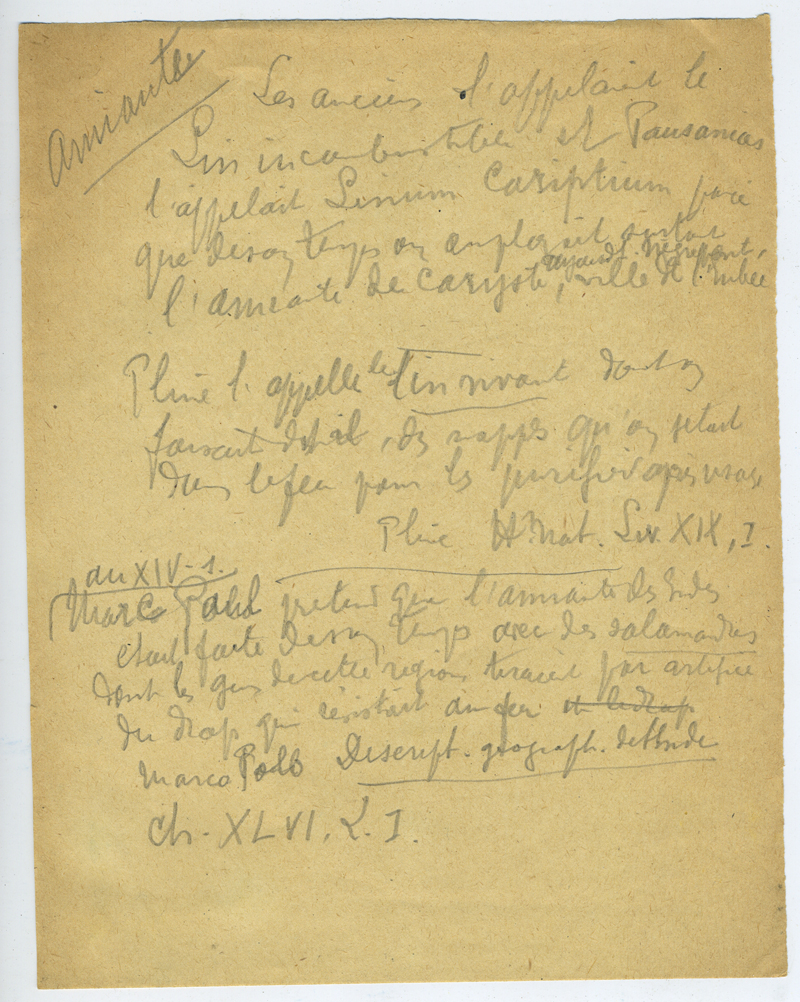 Amiante
Les anciens l'appelait le
Lin incombustible et Pausanias
l'appelait Linum Cariptium parce
que de son temps on employait surtout
aujourd. Négrepont,
l'amiante de Caryste, ville de l'Eubée
Pline l'appelle le lin vivant dont on
faisait dit-il, des nappes qu'on jetait
dans le feu pour les purifier après usage
Pline H. Nat. Liv. XIX, I.
au XIV - s.
Marco Polo prétend que l'amiante des Indes
était faite de son temps avec des salamandres
dont les gens de cette région tiraient par artifice
du drap qui résistait au feu et le drap
Marco Polo Descript. geograph. de l'Inde
Ch. XLVI. L. I.